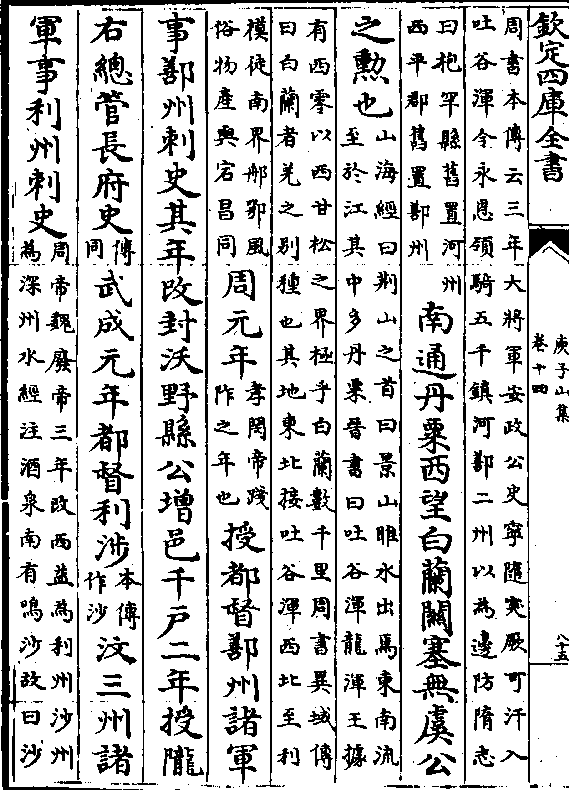 欽定四庫全書
庚子山集
卷十四
八十五
周書本傳云三年大將軍安政公史寧隨突厥可汗入
吐谷渾令永恩領騎五千鎮河鄯二州以為邊防隋志
曰枹罕縣舊置河州
西平郡舊置鄯州
南通丹粟西望白蘭關塞無虞公
之勲也
山海經曰荆山之首曰景山睢水出焉東南流
至於江其中多丹粟晉書曰吐谷渾龍渾王據
有西零以西甘松之界極乎白蘭數千里周書異域傳
曰白蘭者羌之别種也其地東北接吐谷渾西北至利
模徒南界郍鄂風
俗物産與宕昌同
周元年
孝閔帝踐
阼之年也
授都督鄯州諸軍
事鄯州刺史其年改封沃野縣公增邑千戸二年授隴
右總管長府史
傳
同
武成元年都督利涉
本傳
作沙
汶三州諸
軍事利州刺史
周帝魏廢帝三年改西益為利州沙州
為深州水經注酒泉南有鳴沙故曰沙